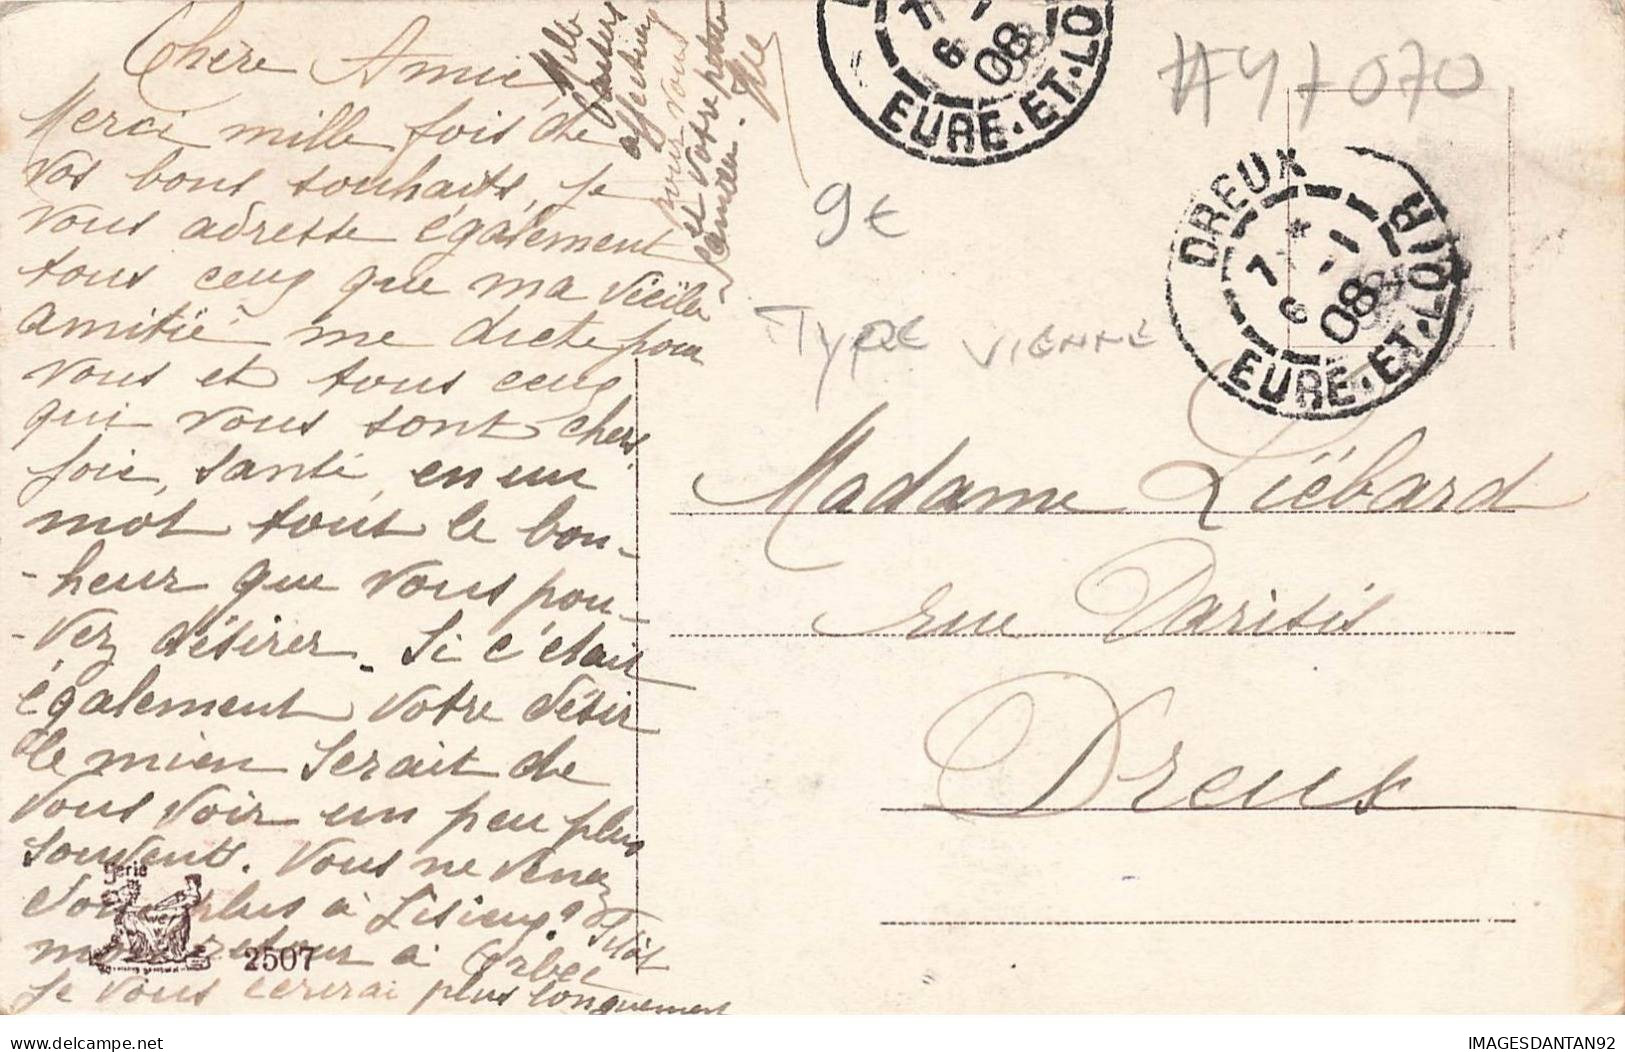 Chère Amie,
Merci mille fois de
vos bons souhaits, je
vous adresse également
tous ceux que ma vieille
amitié me dicte pour
vous et tous ceux
qui vous sont chers
joie, santé, en un
mot tout le bon-
-heur que vous pou-
-vez désirer. Si c'était
également votre désir
le mien serait de
vous voir un peu plus
souvent. Vous ne venez
donc plus à Lisieux? Sitôt
mon retour à Orbec
je vous écrirai plus longuement
Mille
baisers
affectueux
pour vous
et votre petite
Serie
2507
DREUX
7 * 6 -1
08
EURE-ET-LOIR
7 6 -1
08
EURE-ET-LO
#47070
9€
TYPE VIENNE
Madame Liébard
rue Parisis
Dreux
IMAGESDANTAN92
delcampe.net